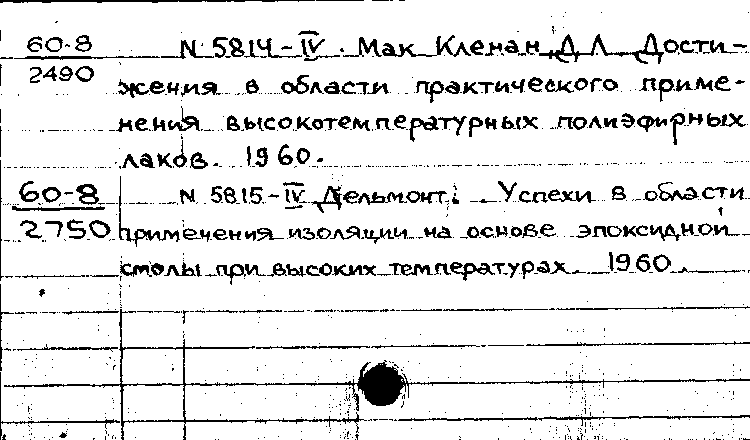 60-8 N 5814-IV. Мак Кленан Д Л Дости-
2490 жения в области практического приме-
нения высокотемпературных полиэфирных
лаков. 1960.
60-8 N 5815-IV Дельмонт. . Успехи в области
2750 применения изоляции на основе эпоксидной
смолы при высоких температурах. 1960.